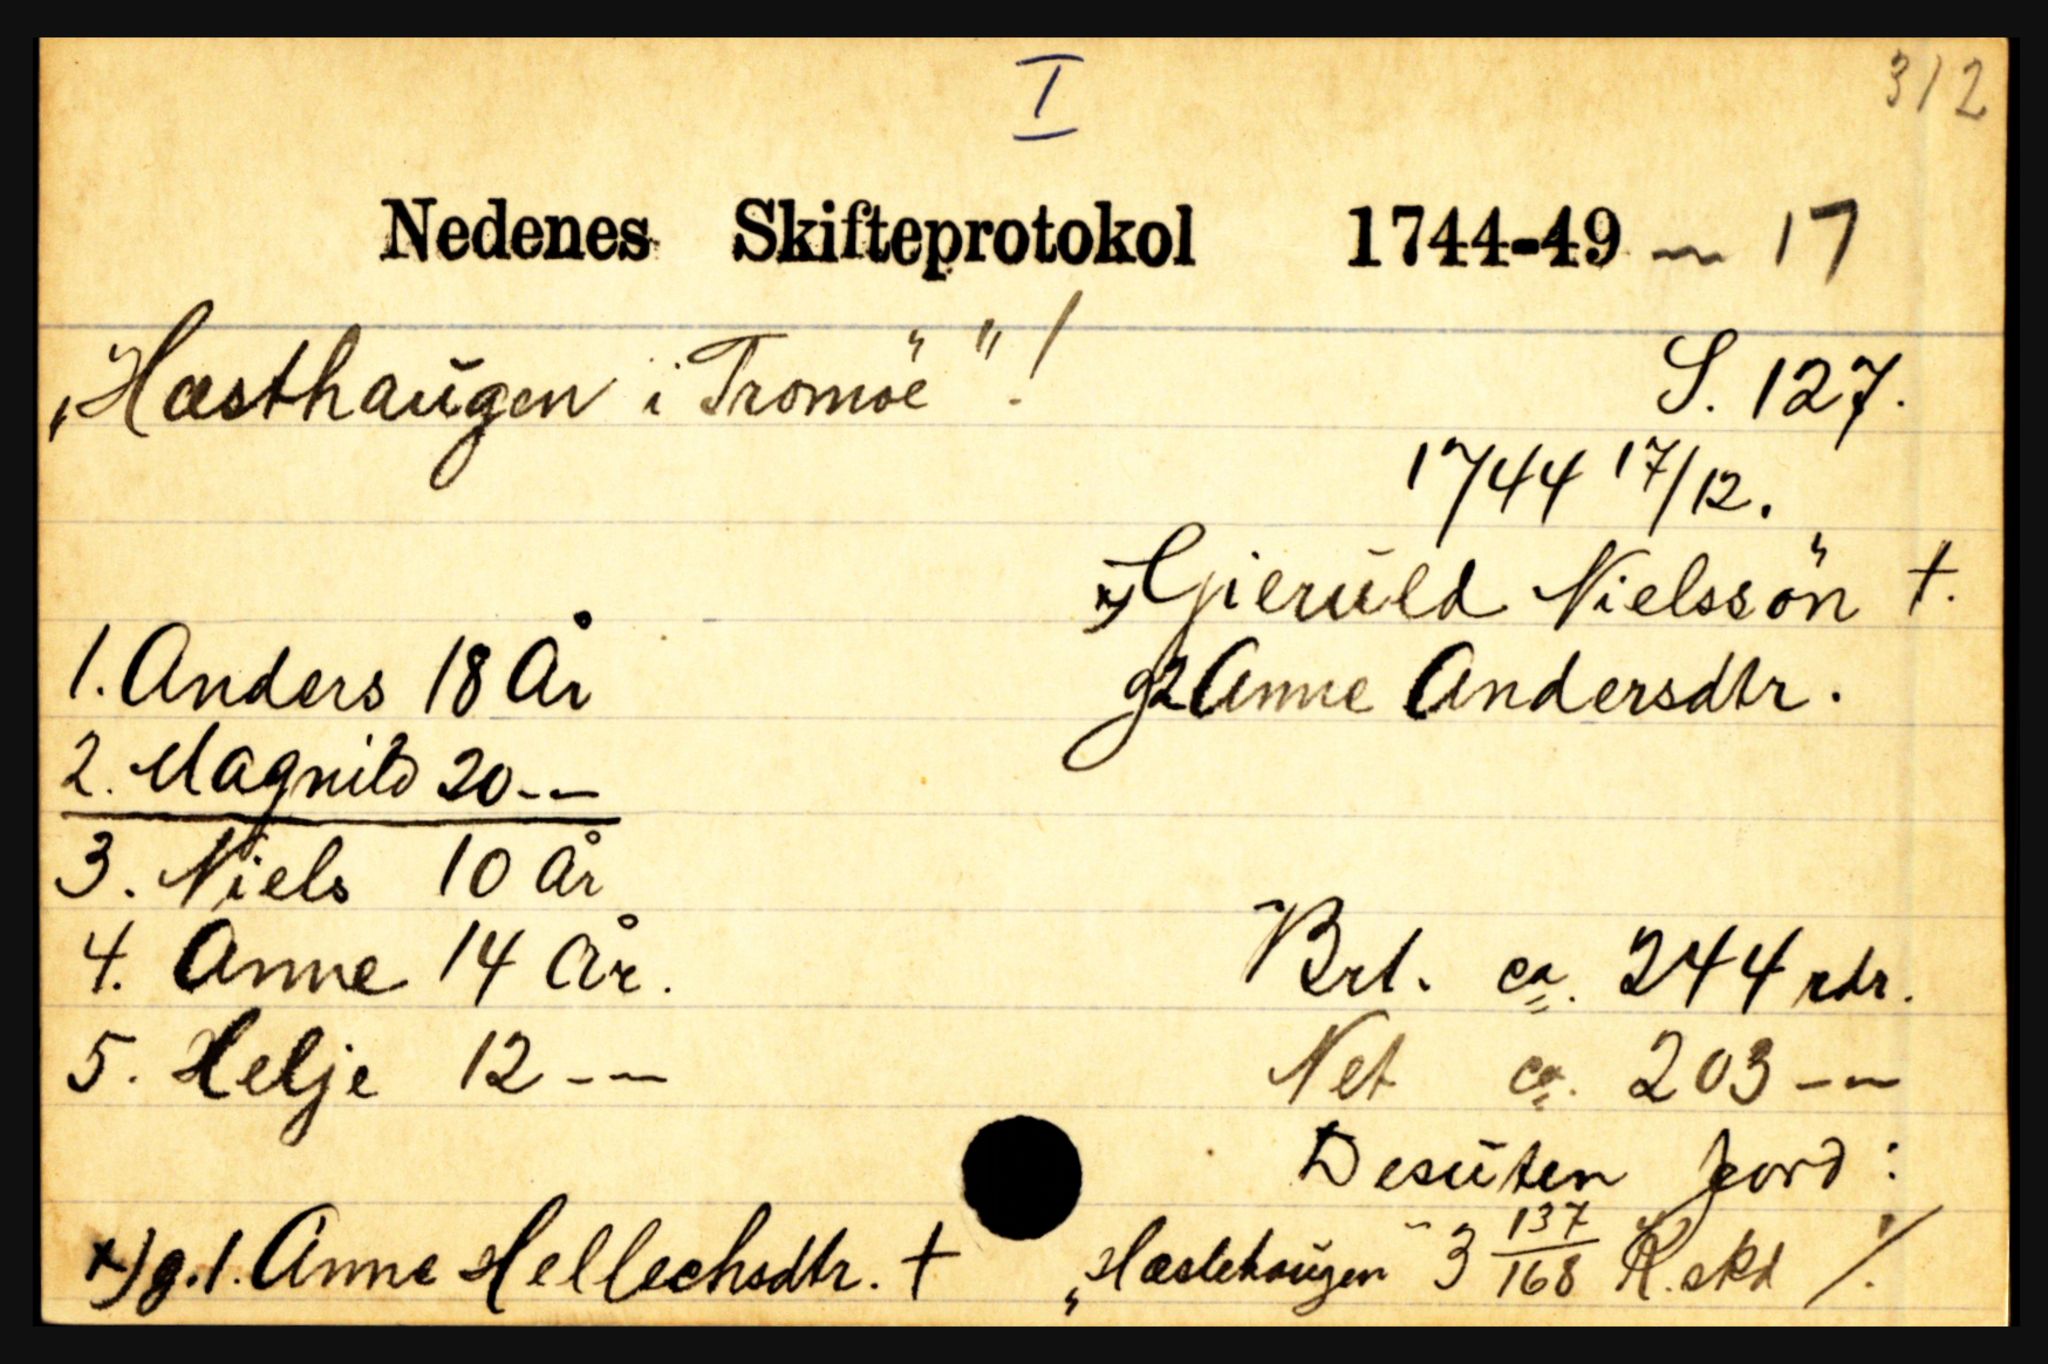 I
312
Nedenes Skifteprotokol 1744-49 — 17
„Hæsthaugen i Tromöe"!
S. 127.
1744 17/12.
x) Gjeruld Nielssön †.
1. Anders 18 År
g2 Anne Andersdtr.
2. Magnild 20 - -
3. Niels 10 år
4. Anne 14 år.
Brt. ca. 244 rdr.
5. Helje 12 - -
Net ca. 203 - -
Desuten Jord:
x) g.1. Anne Hellechsdtr. †
„Hæstehaugen" 3 137/168 K. skd ./.